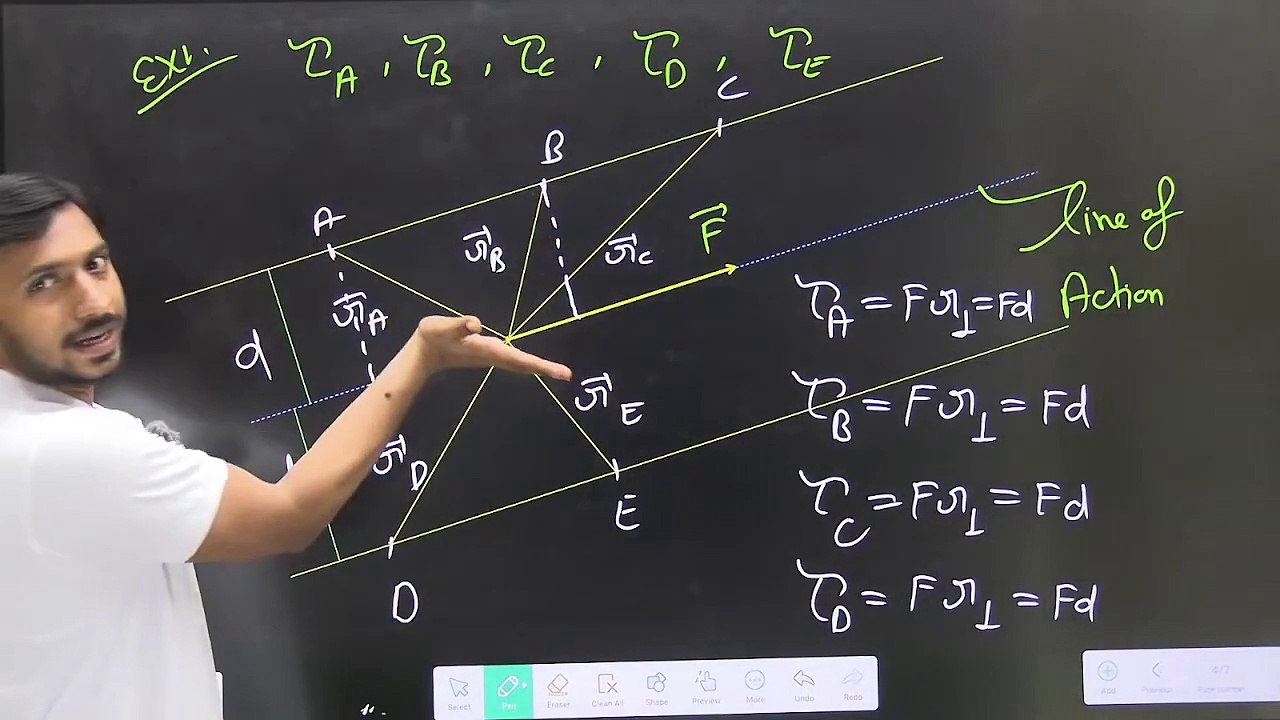 Ex1. τ_A , τ_B , τ_C , τ_D , τ_E
C
B
A
F⃗
line of
Action
r⃗_B
r⃗_C
r⃗_A
d
τ_A = Fr⊥ = Fd
r⃗_E
τ_B = Fr⊥ = Fd
r⃗_D
E
τ_C = Fr⊥ = Fd
D
τ_D = Fr⊥ = Fd
Select Pen Eraser Clean All Shape Preview More Undo Redo
Add Previous 4/7